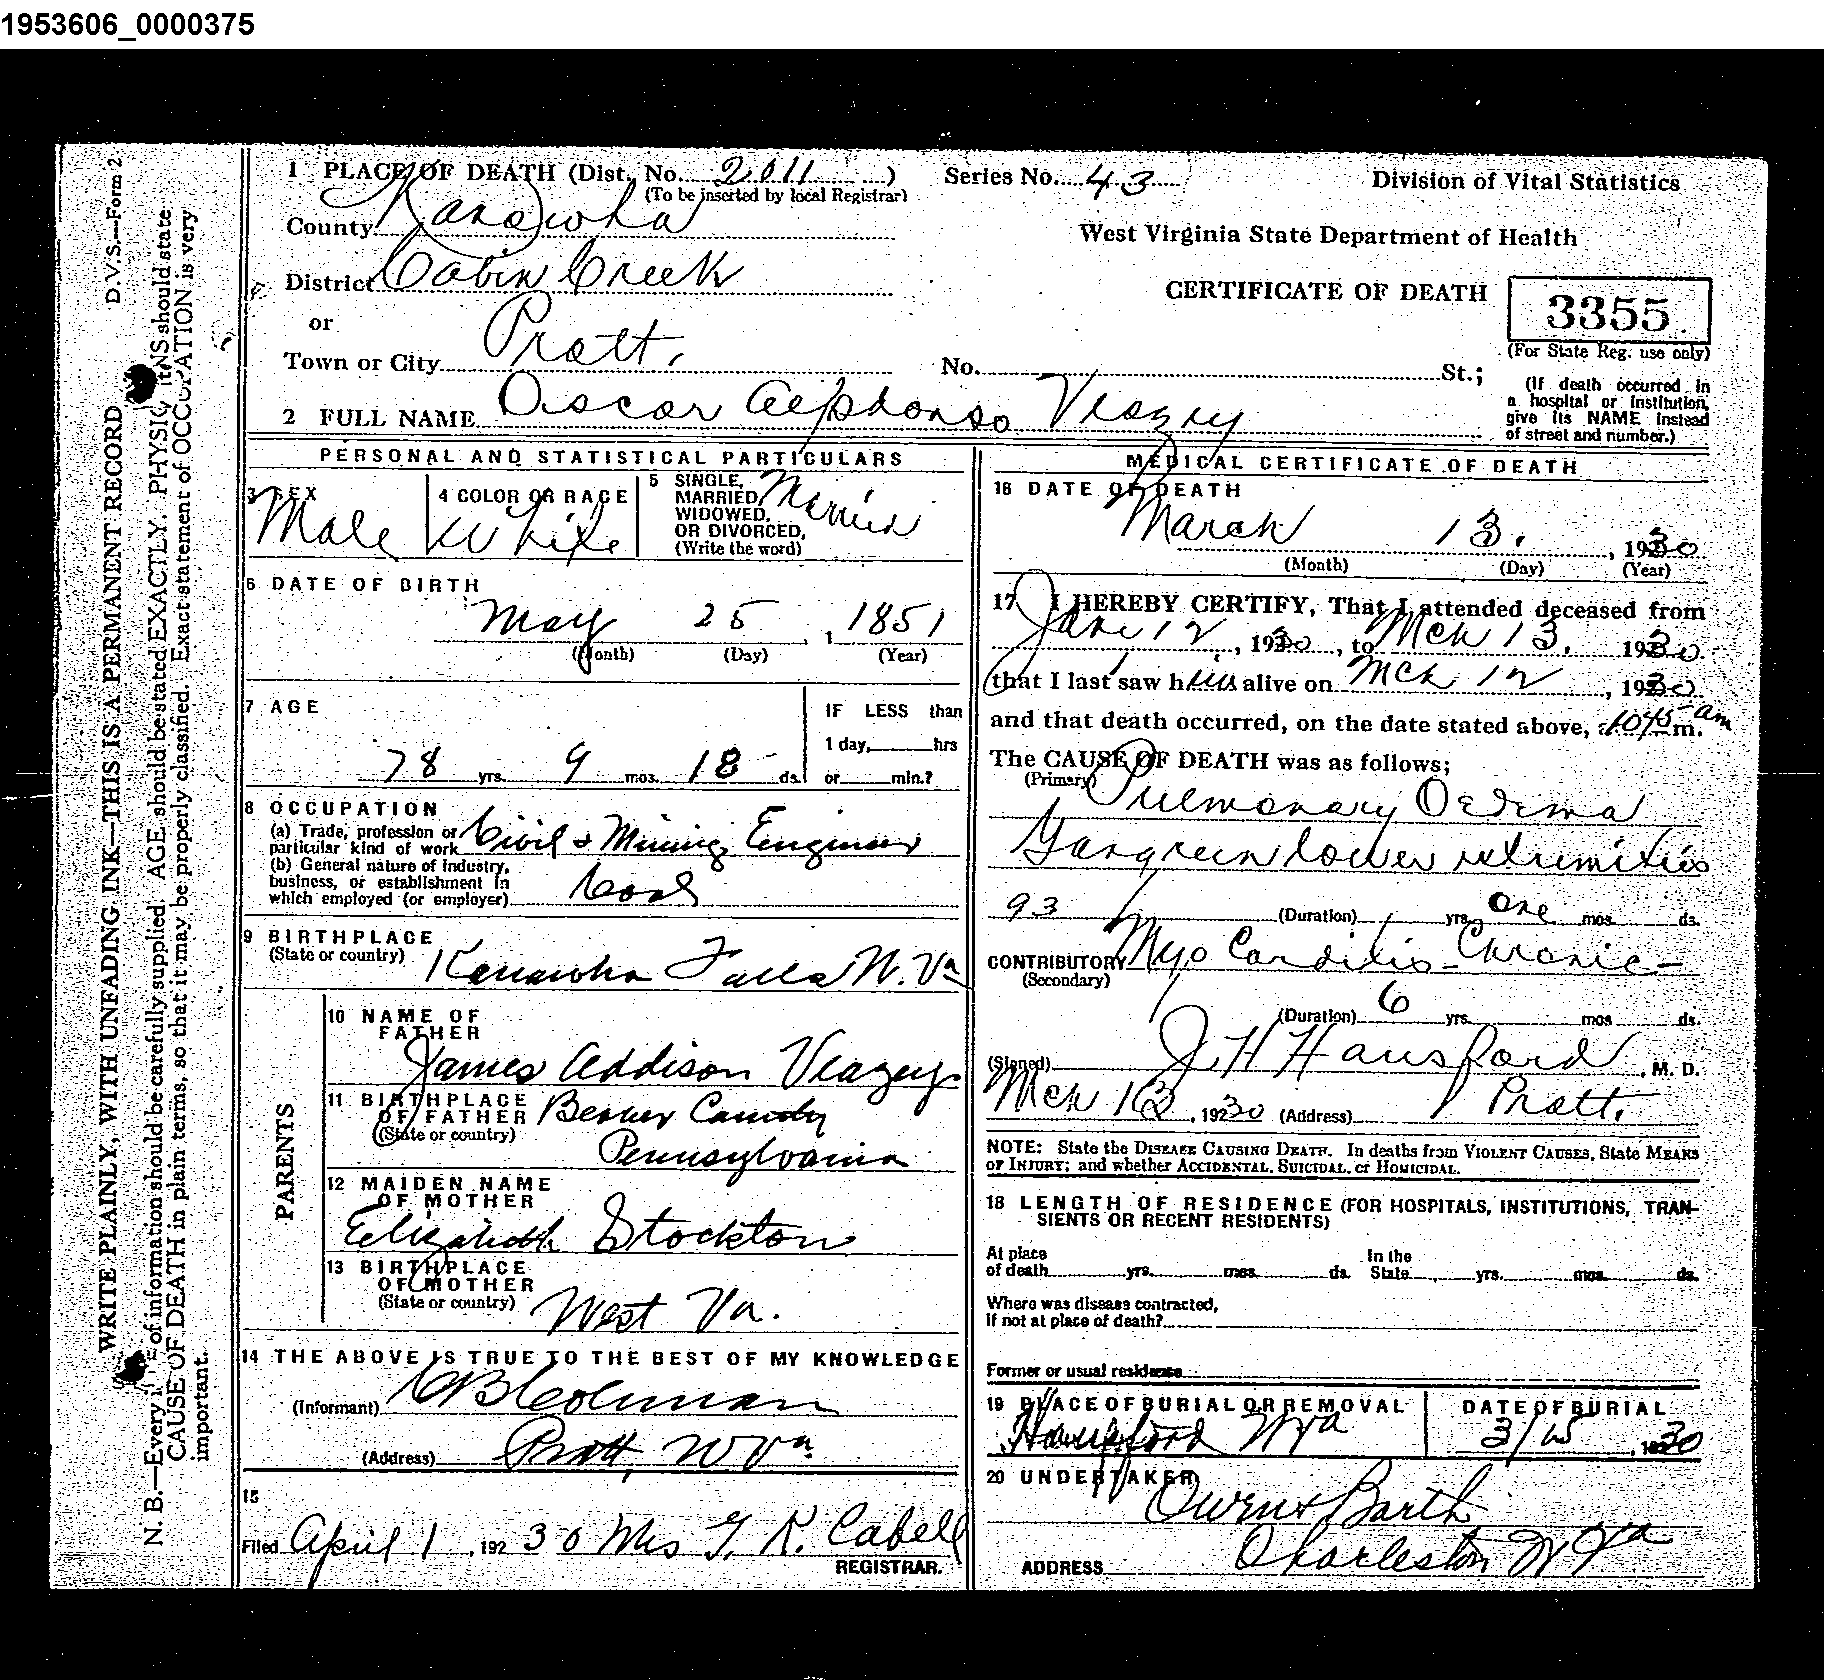 1953606_0000375
D.V.S.—Form 2
WRITE PLAINLY, WITH UNFADING INK—THIS IS A PERMANENT RECORD
N. B.—Every of information should be carefully supplied. AGE should be stated EXACTLY. PHYSIC should state
CAUSE OF DEATH in plain terms, so that it may be properly classified. Exact statement of OCCUPATION is very
important.
1 PLACE OF DEATH (Dist. No. 2011 ) Series No. 43 Division of Vital Statistics
(To be inserted by local Registrar)
County Kanawha
West Virginia State Department of Health
District Cabin Creek
CERTIFICATE OF DEATH 3355
or
(For State Reg. use only)
Town or City Pratt. No. St.;
(If death occurred in
a hospital or institution,
give its NAME instead
of street and number.)
2 FULL NAME Oscar Alphonso Veazey
PERSONAL AND STATISTICAL PARTICULARS
3 SEX
Male
4 COLOR OR RACE
White
5 SINGLE,
MARRIED,
WIDOWED,
OR DIVORCED,
(Write the word)
Married
6 DATE OF BIRTH
May 25, 1851
(Month) (Day) (Year)
7 AGE
78 yrs. 9 mos. 18 ds.
IF LESS than
1 day, hrs
or min.?
8 OCCUPATION
(a) Trade, profession or
particular kind of work Civil & Mining Engineer
(b) General nature of industry,
business, or establishment in
which employed (or employer) Coal
9 BIRTHPLACE
(State or country) Kanawha Falls W. Va
PARENTS
10 NAME OF
FATHER
James Addison Veazey
11 BIRTHPLACE
OF FATHER
(State or country)
Beaver County
Pennsylvania
12 MAIDEN NAME
OF MOTHER
Elizabeth Stockton
13 BIRTHPLACE
OF MOTHER
(State or country) West Va.
14 THE ABOVE IS TRUE TO THE BEST OF MY KNOWLEDGE
(Informant) C B Coleman
(Address) Pratt, W Va
15
Filed April 1, 1930 Mrs T. K. Cabell
REGISTRAR.
MEDICAL CERTIFICATE OF DEATH
16 DATE OF DEATH
March 13. , 1930
(Month) (Day) (Year)
17 I HEREBY CERTIFY, That I attended deceased from
Jan 12, 1930, to Mch 13, 1930
that I last saw him alive on Mch 12, 1930
and that death occurred, on the date stated above, 1045 am m.
The CAUSE OF DEATH was as follows:
(Primary) Pulmonary Oedema
Gangreen lower extremities
93 (Duration) yrs. one mos. ds.
CONTRIBUTORY Myo Carditis - Chronic -
(Secondary)
(Duration) 6 yrs. mos. ds.
(Signed) J H Hansford, M. D.
Mch 13, 1930 (Address) Pratt.
NOTE: State the DISEASE CAUSING DEATH. In deaths from VIOLENT CAUSES, State MEANS
OF INJURY; and whether ACCIDENTAL, SUICIDAL, or HOMICIDAL.
18 LENGTH OF RESIDENCE (FOR HOSPITALS, INSTITUTIONS, TRAN-
SIENTS OR RECENT RESIDENTS)
At place
of death yrs. mos. ds. In the
State yrs. mos. ds.
Where was disease contracted,
if not at place of death?
Former or usual residence
19 PLACE OF BURIAL OR REMOVAL
Hansford W Va
DATE OF BURIAL
3/15, 1930
20 UNDERTAKER
Owen & Barth
ADDRESS Charleston W Va